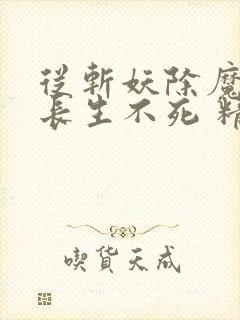 從斬妖除魔
長生不死 精
喫貨天成